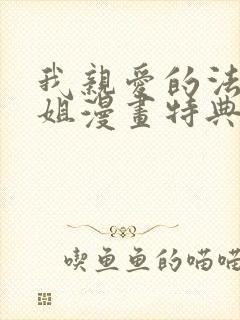 我親愛的法
姐漫畫特典
喫魚魚的喵喵